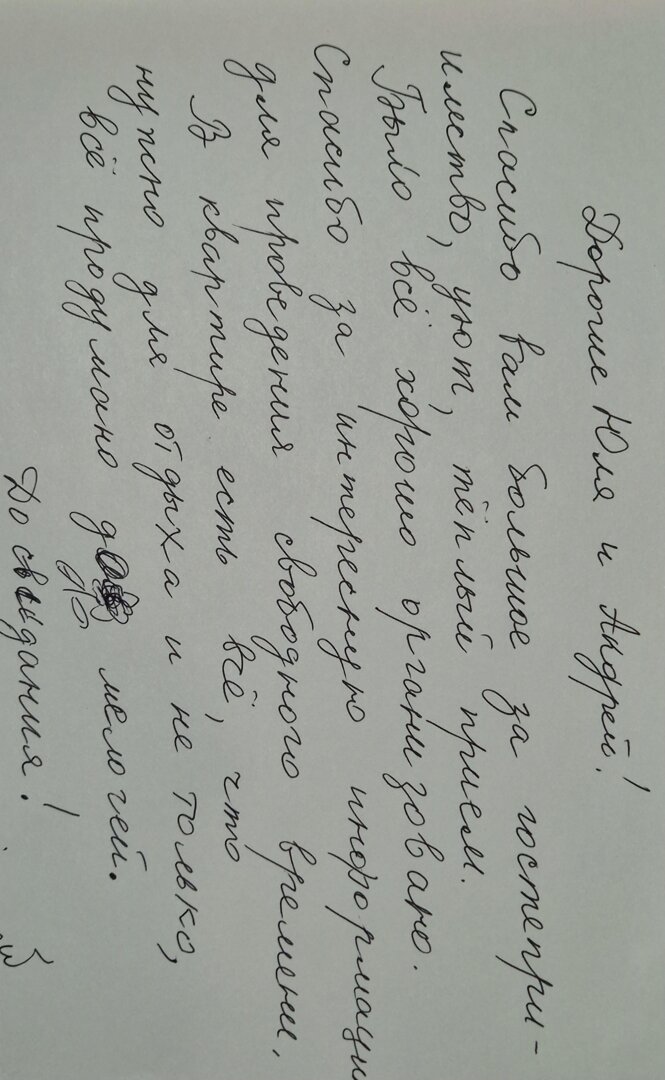 Дорогие Юля и Андрей!
Спасибо вам большое за гостепри-
имство, уют, тёплый прием.
Было всё хорошо организовано.
Спасибо за интересную информаци
для проведения свободного времени.
В квартире есть всё, что
нужно для отдыха и не только,
всё продумано до мелочей.
До свидания!